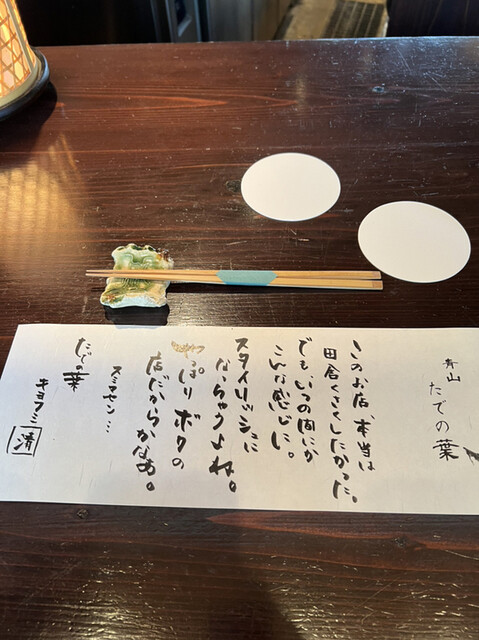 青山
たでの葉
このお店、本当は
田舎くさくしたかった。
でも、いつの間にか
こんな感じに。
スタイリッシュに
なっちゃうよね。
やっぱりボクの
店だからかなぁ。
スミマセン…
たでの葉
キヨフミ
清